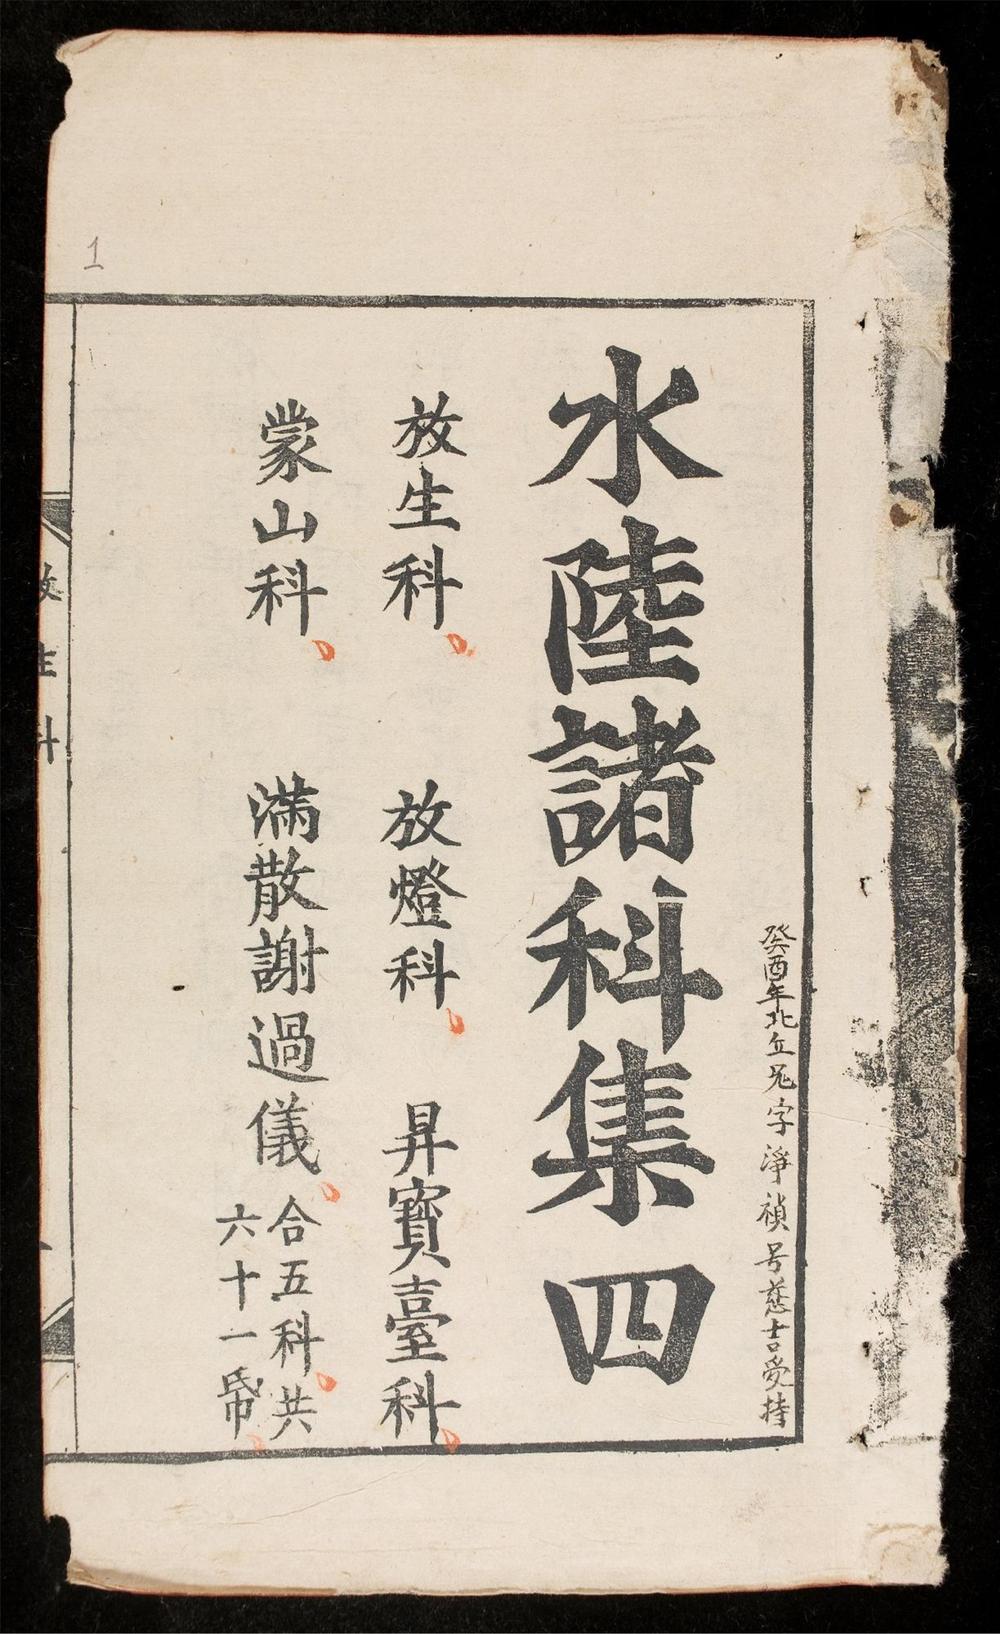 癸酉年北丘兄字淨禎号慈士受持
水陸諸科集四
放生科 放燈科 昇寶臺科
蒙山科 滿散謝過儀 合五科共
六十一帋
放生科
1